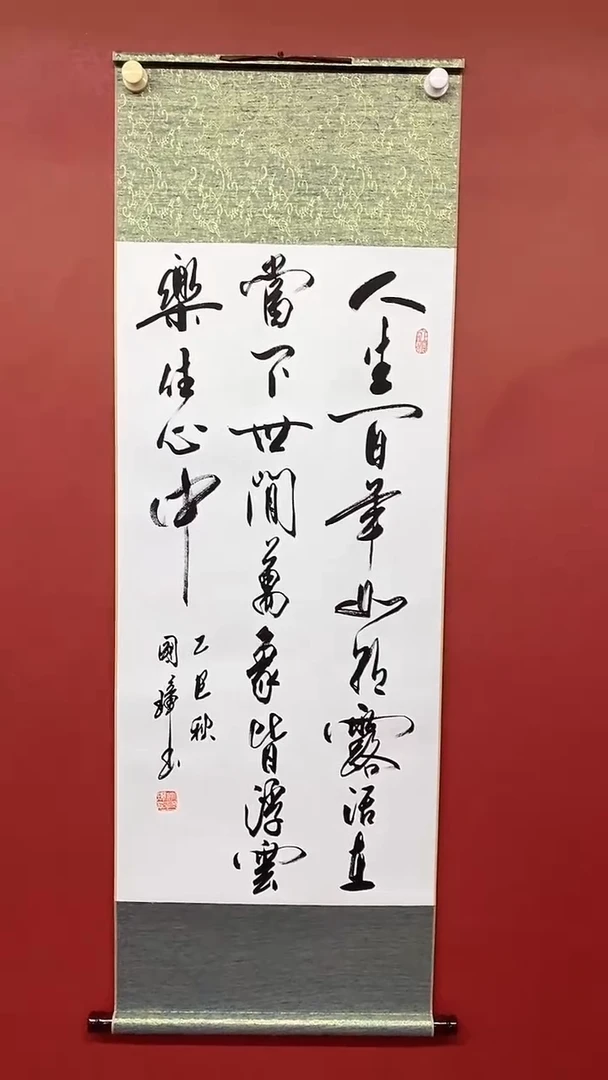 人生百年如朝露活在
當下世間萬象皆浮雲
樂住心中
乙巳秋
國璋書